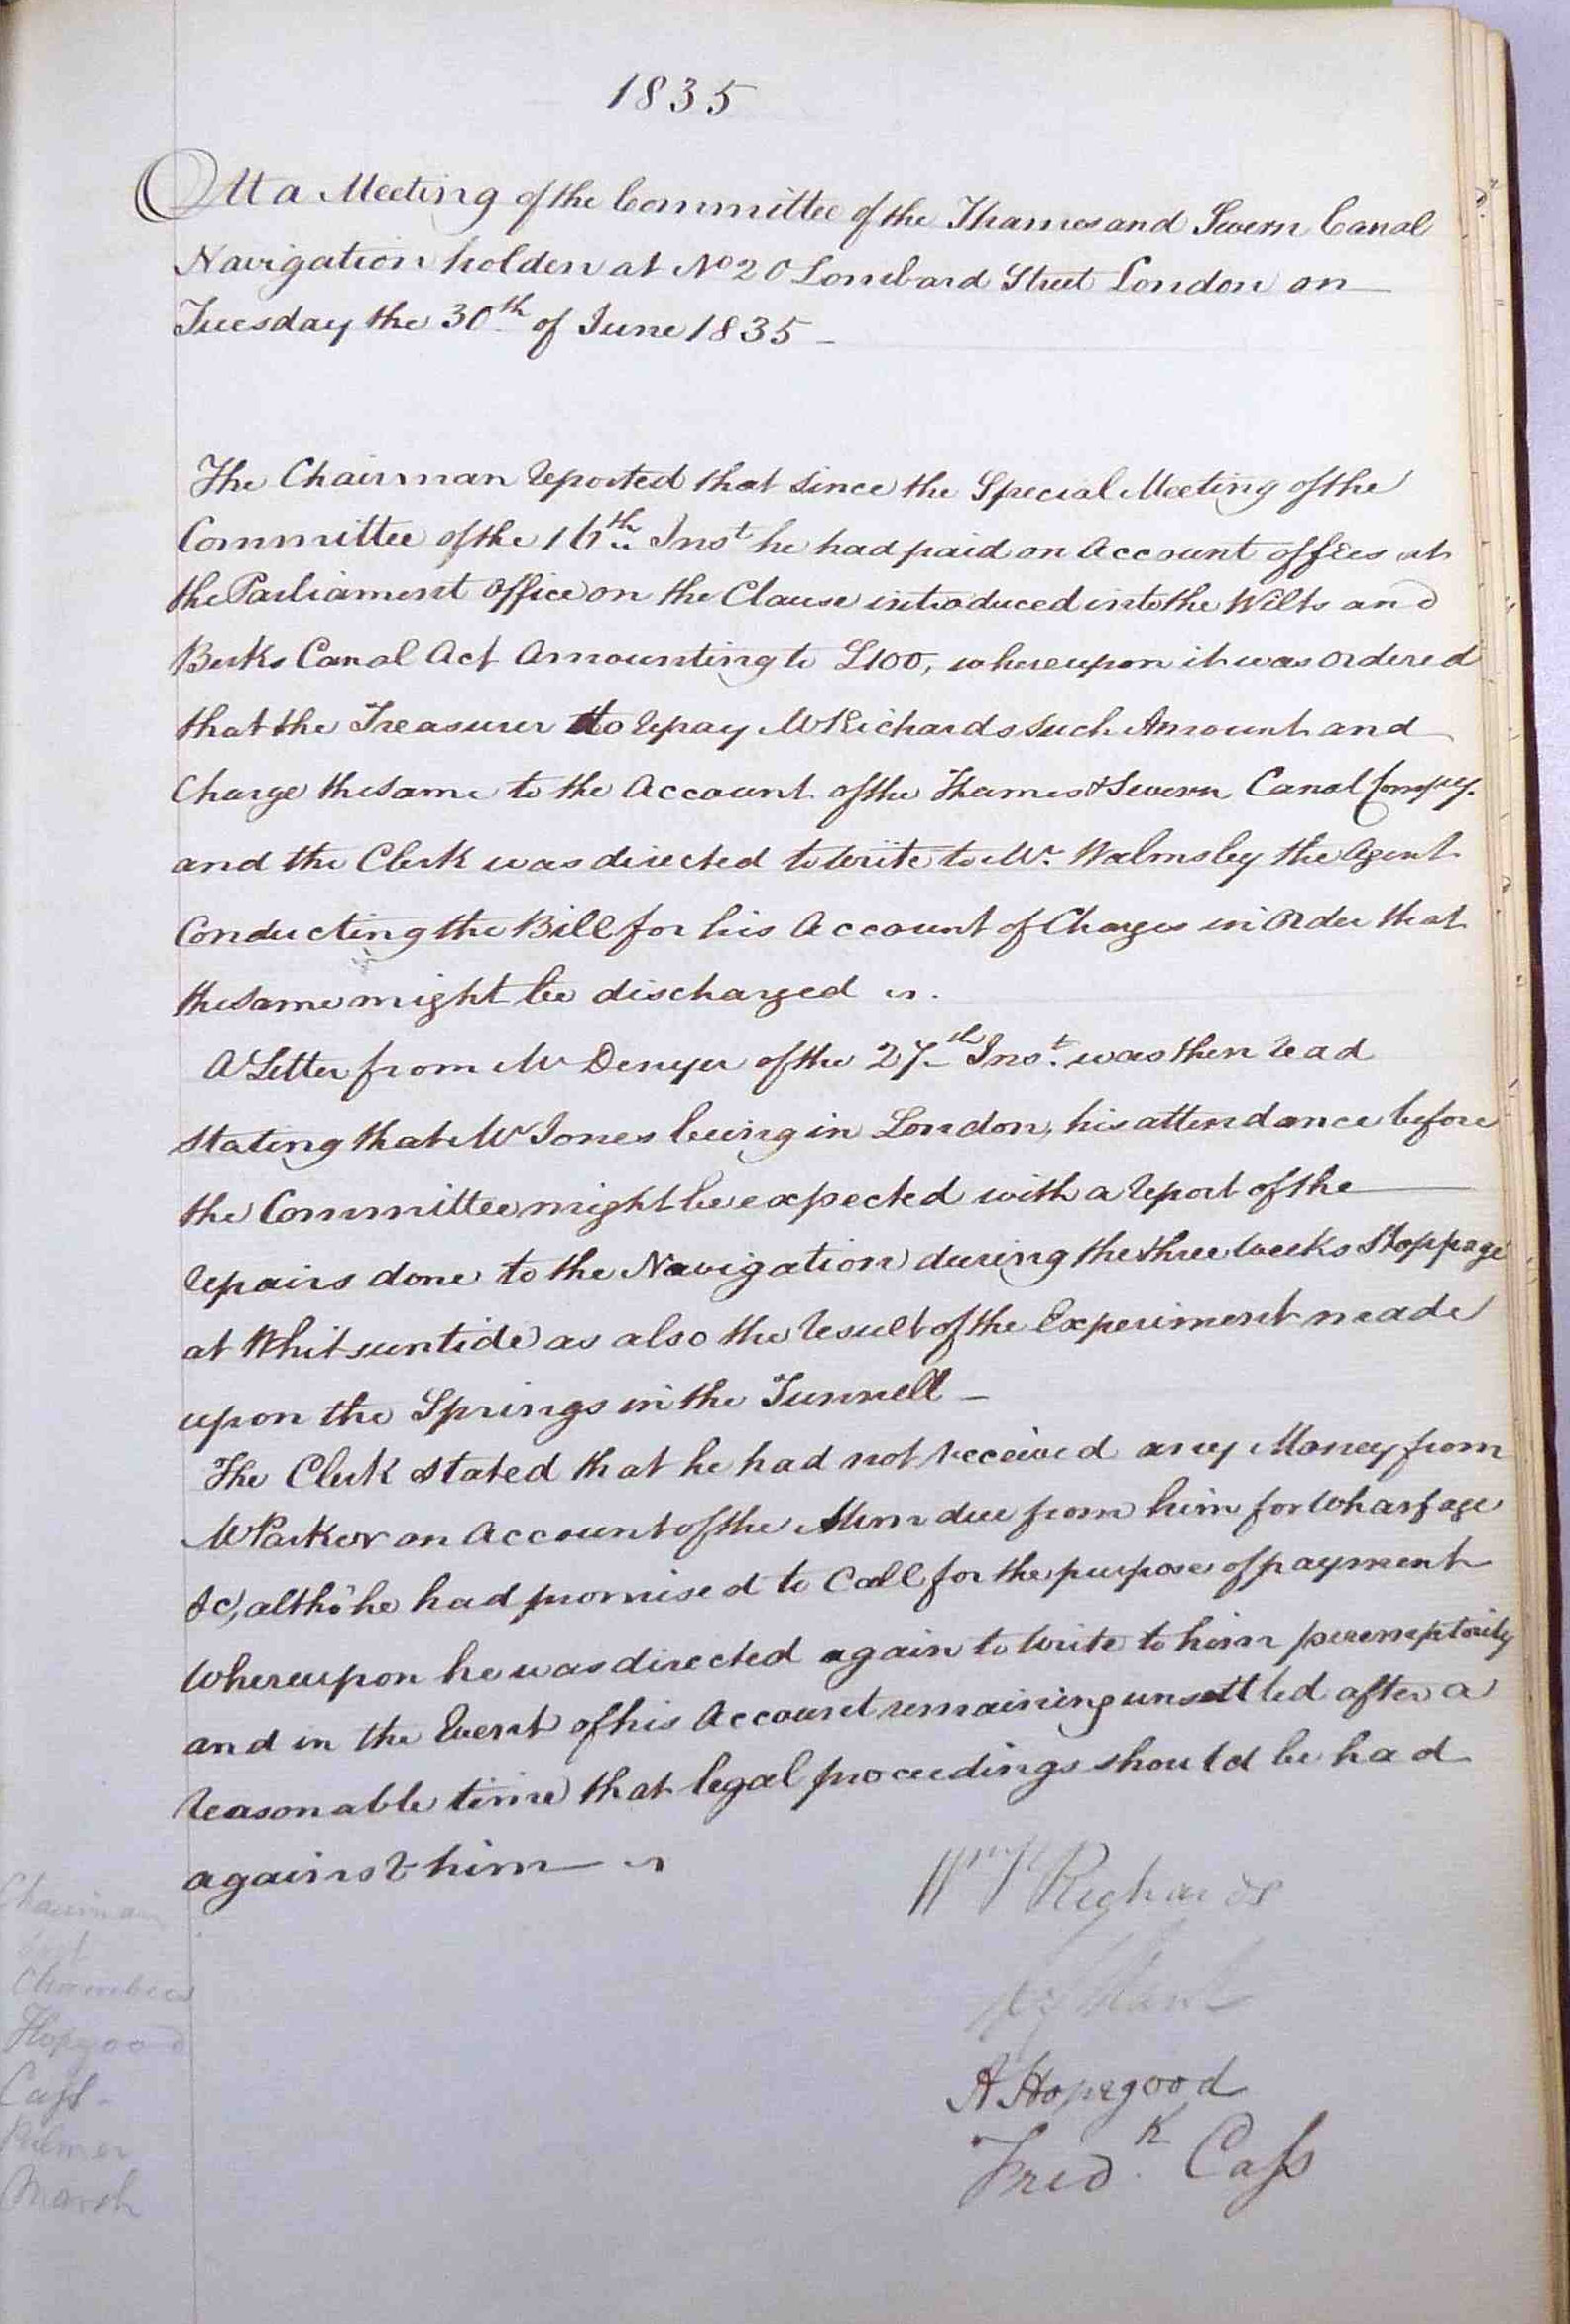 1835
At a Meeting of the Committee of the Thames and Severn Canal
Navigation holden at No 20 Lombard Street London on
Tuesday the 30th of June 1835 -
The Chairman reported that since the Special Meeting of the
Committee of the 16th Inst he had paid on Account of fees at
the Parliament Office on the Clause introduced into the Wilts and
Berks Canal Act Amounting to £100, whereupon it was Ordered
that the Treasurer to repay Mr Richards such Amount and
Charge the same to the Account of the Thames & Severn Canal Compy.
and the Clerk was directed to write to Mr. Walmsley the Agent
Conducting the Bill for his Account of Charges in Order that
the same might be discharged
A Letter from Mr Denyer of the 27th Inst. was then read
stating that Mr Jones being in London, his attendance before
the Committee might be expected with a report of the
repairs done to the Navigation during the three weeks Stoppage
at Whitsuntide as also the result of the Experiment made
upon the Springs in the Tunnell -
The Clerk stated that he had not received any Money from
Mr Parker on Account of the Sum due from him for Wharfage
&c, altho' he had promised to Call for the purpose of payment
Whereupon he was directed again to write to him peremptorily
and in the Event of his Account remaining unsettled after a
reasonable time that legal proceedings should be had
against him
Richards
A Hopegood
Fredk. Cass
Chairman
Chambers
Hopgood
Cass -
Marsh